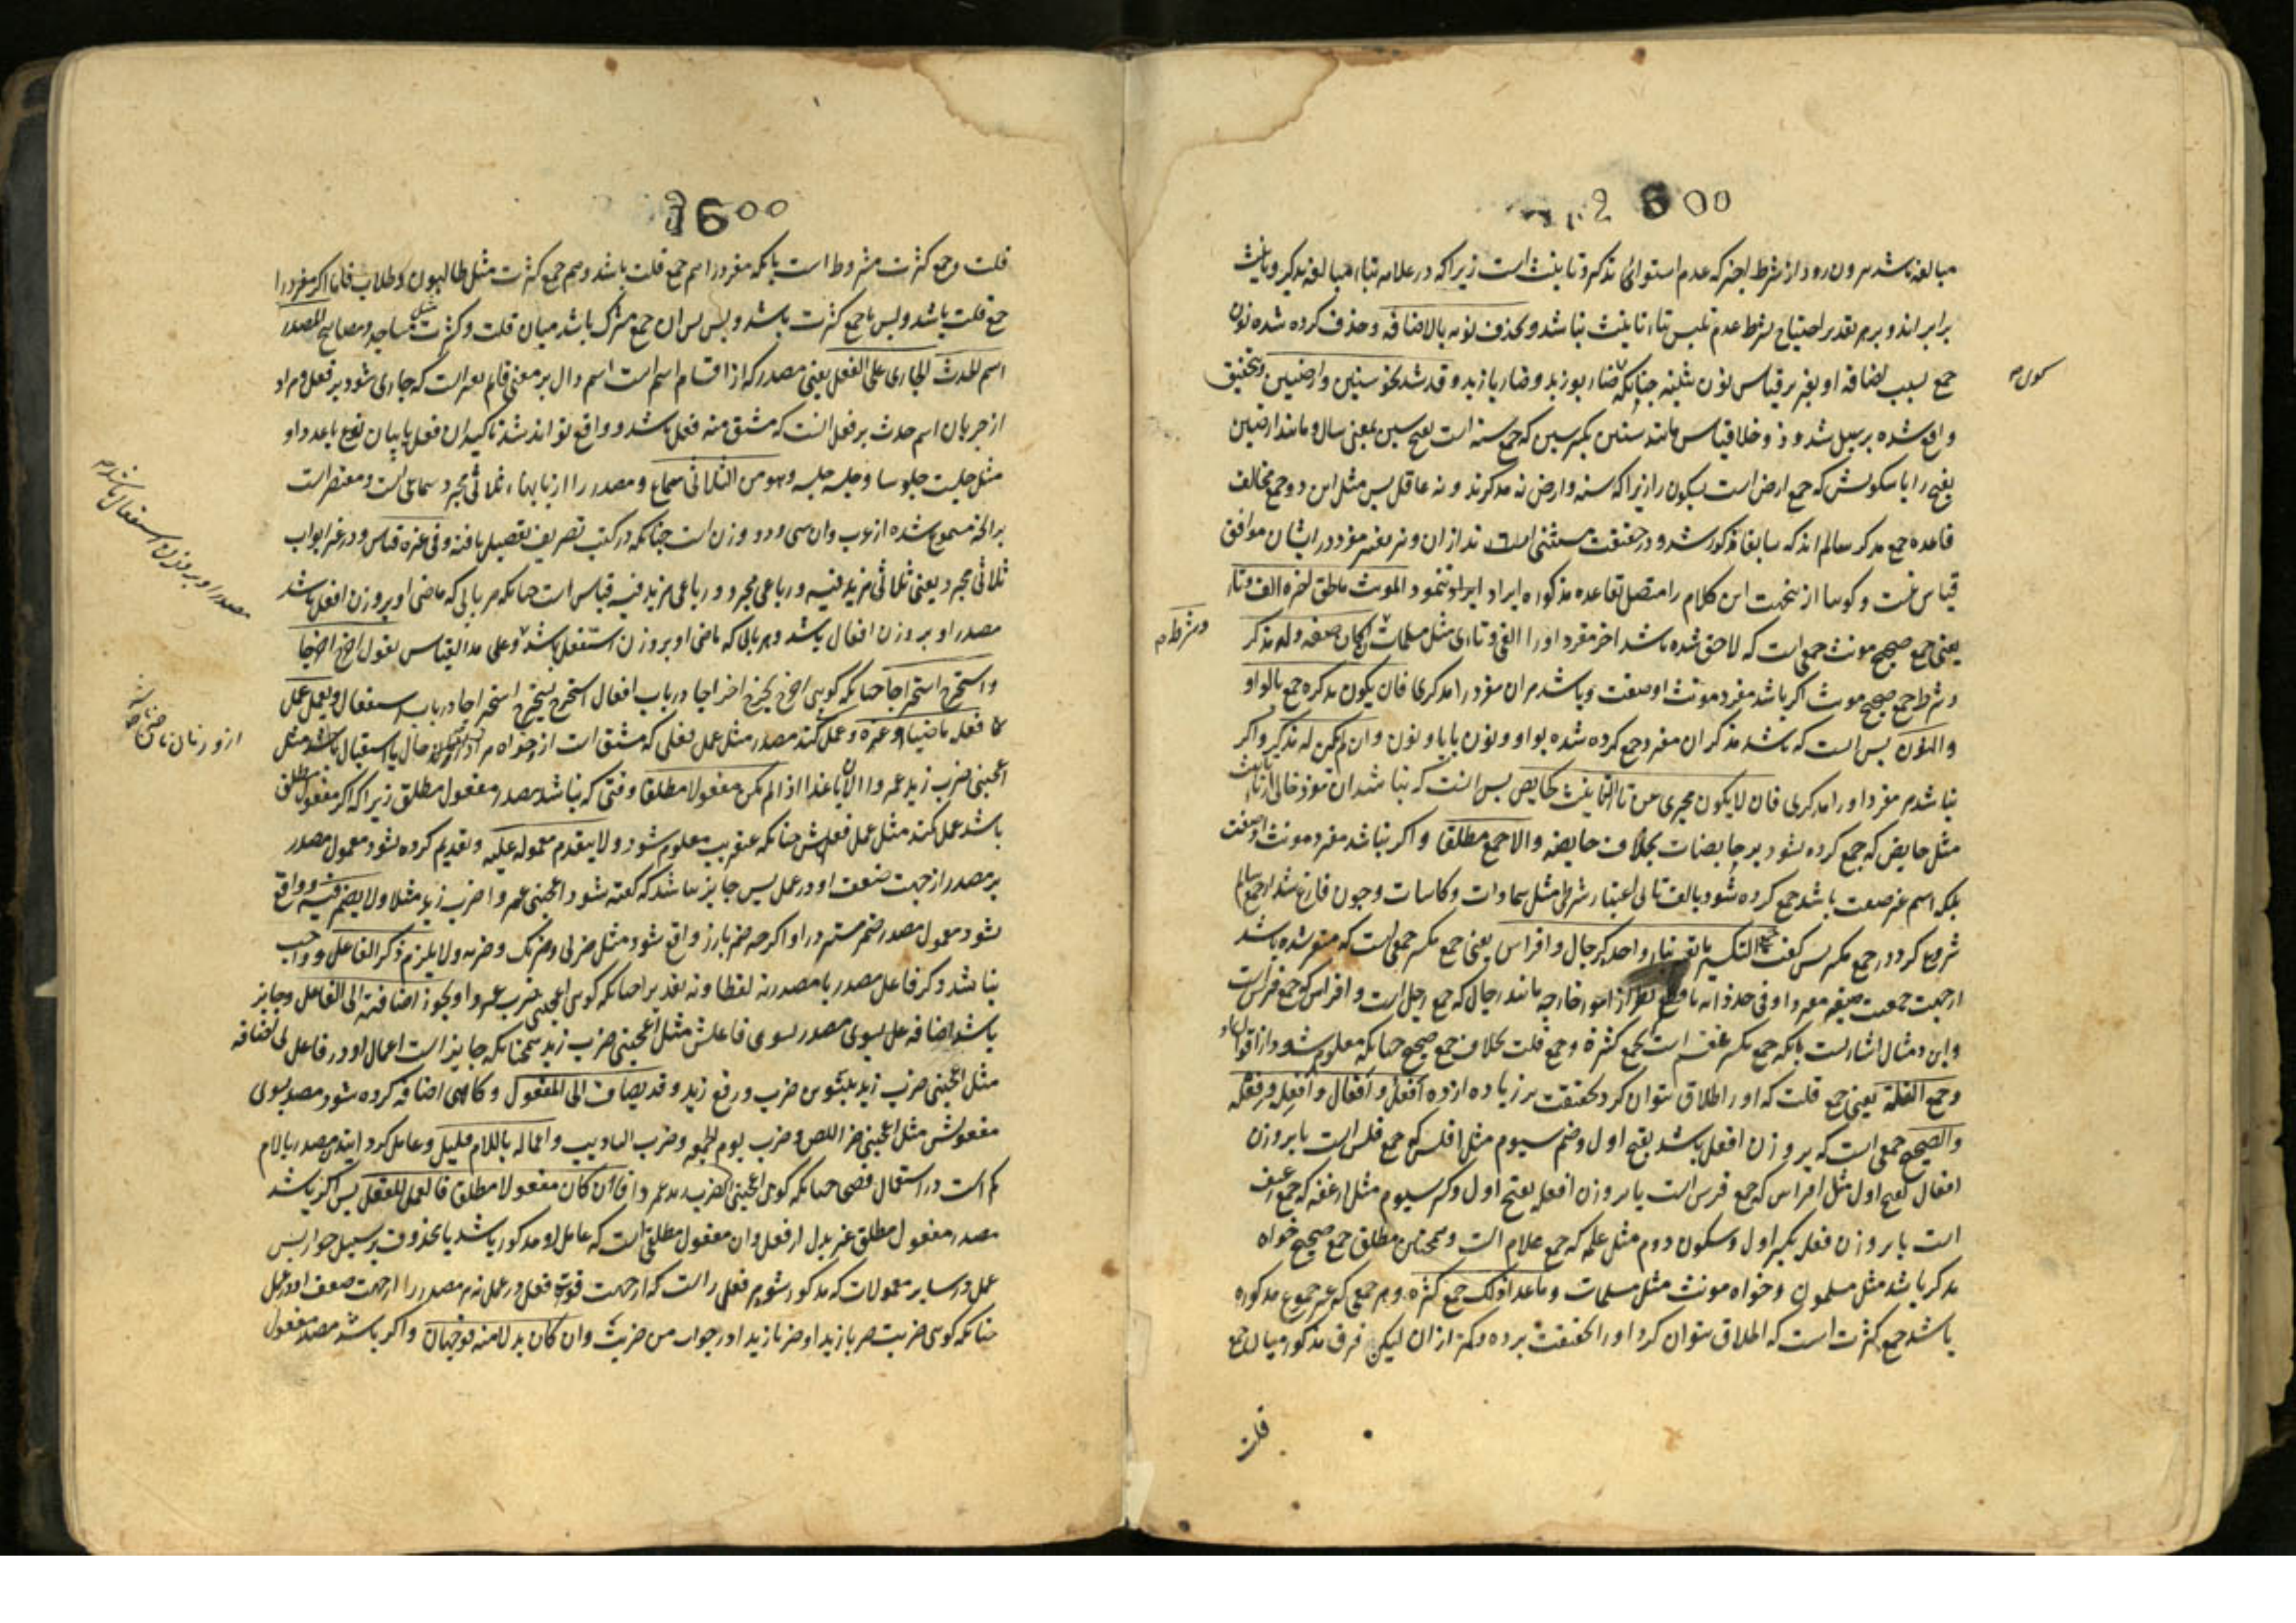 2600
مبالغه باشد بیرون رود از شرط اخیر که عدم استوائی تذکیر و تانیث است زیرا که در علامه بتاء مبالغه تذکیر و تانیث
برابر اند و بر هر تقدیر احتیاج بشرط عدم تلبس بتاء تانیث نباشد و بحذف نونه بالاضافه و حذف کرده شده نون
جمع بسبب اضافه او بغیر بر قیاس نون تثنیه چنانکه ضاربو زید و ضاربا زید و قد شذ نحو سنین و ارضین و بتحقیق
واقع شده بر سبیل شذوذ و خلاف قیاس مانند سنین بکسر سین که جمع سنه است بفتح سین بمعنی سال و مانند ارضین
بفتح را با سکونش که جمع ارض است بسکون را زیرا که سنه و ارض نه مذکرند و نه عاقل پس مثل این دو جمع مخالف
قاعده جمع مذکر سالم اند که سابقا مذکور شد و در حقیقت مستثنی اند از ان
قیاس نیست و گویا از ینجهت این کلام را متصل بقاعده مذکوره ایراد نمود المونث ما لحق اخره الف و تاء
یعنی جمع صحیح مونث جمعی است که لاحق شده باشد اخر مفرد او را الفی و تائی مثل مسلمات ان کان صفه و له مذکر
و شرط جمع صحیح مونث اگر باشد مفرد مونث او صفت و باشد مر ان مفرد را مذکری فان یکون مذکره جمع بالواو
والنون پس است که باشد مذکر ان مفرد جمع کرده شده بواو و نون یا یا و نون و ان لم یکن له مذکر و اگر
نباشد مر مفرد او را مذکری فان لا یکون مجردی عن تاء التانیث کحایض پس انست که نباشد ان مفرد خالی از تاء تانیث
مثل حایض که جمع کرده نشود بر حایضات بخلاف حایضه والا جمع مطلقا و اگر نباشد مفرد مونث او صفت
بلکه اسم غیر صفت باشد جمع کرده شود بالف تا بی اعتبار شرطی مثل سماوات و کاسات و چون فارغ شد از جمع سالم
شروع کرد در جمع مکسر پس گفت جمع التکسیر ما تغیر بناء واحده کرجال و افراس یعنی جمع مکسر جمعی است که متغیر شده باشد
از جهت جمعیت صیغه مفرد او فی حد ذاته با قطع نظر از امور خارجه مانند رجال که جمع رجل است و افراس که جمع فرس است
و این دو مثال اشارتست بانکه جمع مکسر منقسم است بجمع کثرة و جمع قلت بخلاف جمع صحیح چنانکه معلوم شود
و جمع القلة یعنی جمع قلت که او را اطلاق نتوان کرد بحقیقت بر زیاده از ده افعل و افعال و افعلة و فعلة
والصحیح جمعی است که بر وزن افعل باشد بفتح اول و ضم سیوم مثل افلس که جمع فلس است یا بر وزن
افعال بفتح اول مثل افراس که جمع فرس است یا بر وزن افعله بفتح اول و کسر سیوم مثل ارغفه که جمع رغیف
است یا بر وزن فعله بکسر اول و سکون دوم مثل غلمه که جمع غلام است و همچنین مطلق جمع صحیح خواه
مذکر باشد مثل مسلمون و خواه مونث مثل مسلمات و ما عدا ذلک جمع کثرة و هر جمعی که غیر جموع مذکوره
باشد جمع کثرت است که اطلاق نتوان کرد او را بحقیقت بر ده و کمتر از ان لیکن فرق مذکور میان جمع
قلت
وشرط م
1600
قلت و جمع کثرت مشروط است بانکه مفرد را هم جمع قلت باشد و هم جمع کثرت مثل طالبون و طلاب فاما اگر مفرد را
جمع قلت باشد و بس یا جمع کثرت باشد و بس پس ان جمع مشترک باشد میان قلت و کثرت مثل مساجد و مصابیح المصدر
اسم الحدث الجاری علی الفعل یعنی مصدر که از اقسام اسم است اسم دال بر معنی قایم بغیر است که جاری شود بر فعل و مراد
از جریان اسم حدث بر فعل انست که مشتق منه فعل باشد و واقع تواند شد تاکید ان فعل یا بیان نوع یا عدد او
مثل جلست جلوسا و جلسه جلسه و هو من الثلاثی سماع و مصدر را از بابهاء ثلاثی مجرد سماعی است و مقتصر است
برانچه مسموع شده از عرب و ان سی و دو وزن است چنانکه در کتب تصریف تفصیل یافته و فی غیره قیاس و در غیر ابواب
ثلاثی مجرد یعنی ثلاثی مزید فیه و رباعی مجرد و رباعی مزید فیه قیاس است چنانکه هر بابی که ماضی او بر وزن افعل باشد
مصدر او بر وزن افعال باشد و هر بابی که ماضی او بر وزن استفعل باشد و علی هذا القیاس تقول اخرج اخراجا
و استخرج استخراجا چنانکه گویی اخرج یخرج اخراجا در باب افعال استخرج یستخرج استخراجا در باب استفعال و یعمل عمل
فعله ماضیا و غیره و عمل کند مصدر مثل عمل فعلی که مشتق است از و خواه حال یا استقبال باشد مثل
اعجبنی ضرب زید عمروا الان او غدا اذا لم یکن مفعولا مطلقا وقتی که نباشد مصدر مفعول مطلق زیرا که اگر مفعول مطلق
باشد عمل کند مثل عمل فعلش چنانکه عنقریب معلوم شود و لا یتقدم معموله علیه و تقدیم کرده نشود معمول مصدر
بر مصدر از جهت ضعف او در عمل پس جایز نباشد که گفته شود اعجبنی عمروا ضرب زید مثلا و لا یضمر فیه و واقع
نشود معمول مصدر ضمیر مستتر در او اگرچه ضمیر بارز واقع شود مثل ضربی و ضربک و ضربه و لا یلزم ذکر الفاعل و واجب
نباشد ذکر فاعل مصدر با مصدر نه لفظا و نه تقدیرا چنانکه گویی اعجبنی ضرب عمروا و یجوز اضافته الی الفاعل و جایز
باشد اضافه مصدر بسوی فاعلش مثل اعجبنی ضرب زید همچنانکه جایز است اعمال او در فاعل بی اضافه
مثل اعجبنی ضرب زید بتنوین ضرب و رفع زید و قد یضاف الی المفعول و گاهی اضافه کرده شود مصدر بسوی
مفعولش مثل اعجبنی ضرب اللص و ضرب یوم الجمعه و ضرب التادیب و اعماله باللام قلیل و عامل گردانیدن مصدر بالام
کم است در استعمال فصحی چنانکه گویی اعجبنی الضرب زید عمروا فان کان مفعولا مطلقا فالعمل للفعل پس اگر باشد
مصدر مفعول مطلق غیر بدل از فعل و ان مفعول مطلقی است که عامل او مذکور باشد یا محذوف بر سبیل جواز پس
عمل در سایر معمولات که مذکور شود مر فعل راست که از جهت قوت فعل در عمل نه مر مصدر را از جهت ضعف او در عمل
چنانکه گویی ضربت ضربا زیدا و ضربا زیدا در جواب من ضربت و ان کان بدلا منه فوجهان و اگر باشد مصدر مفعول
مصدر او بر وزن استفعال باشد م